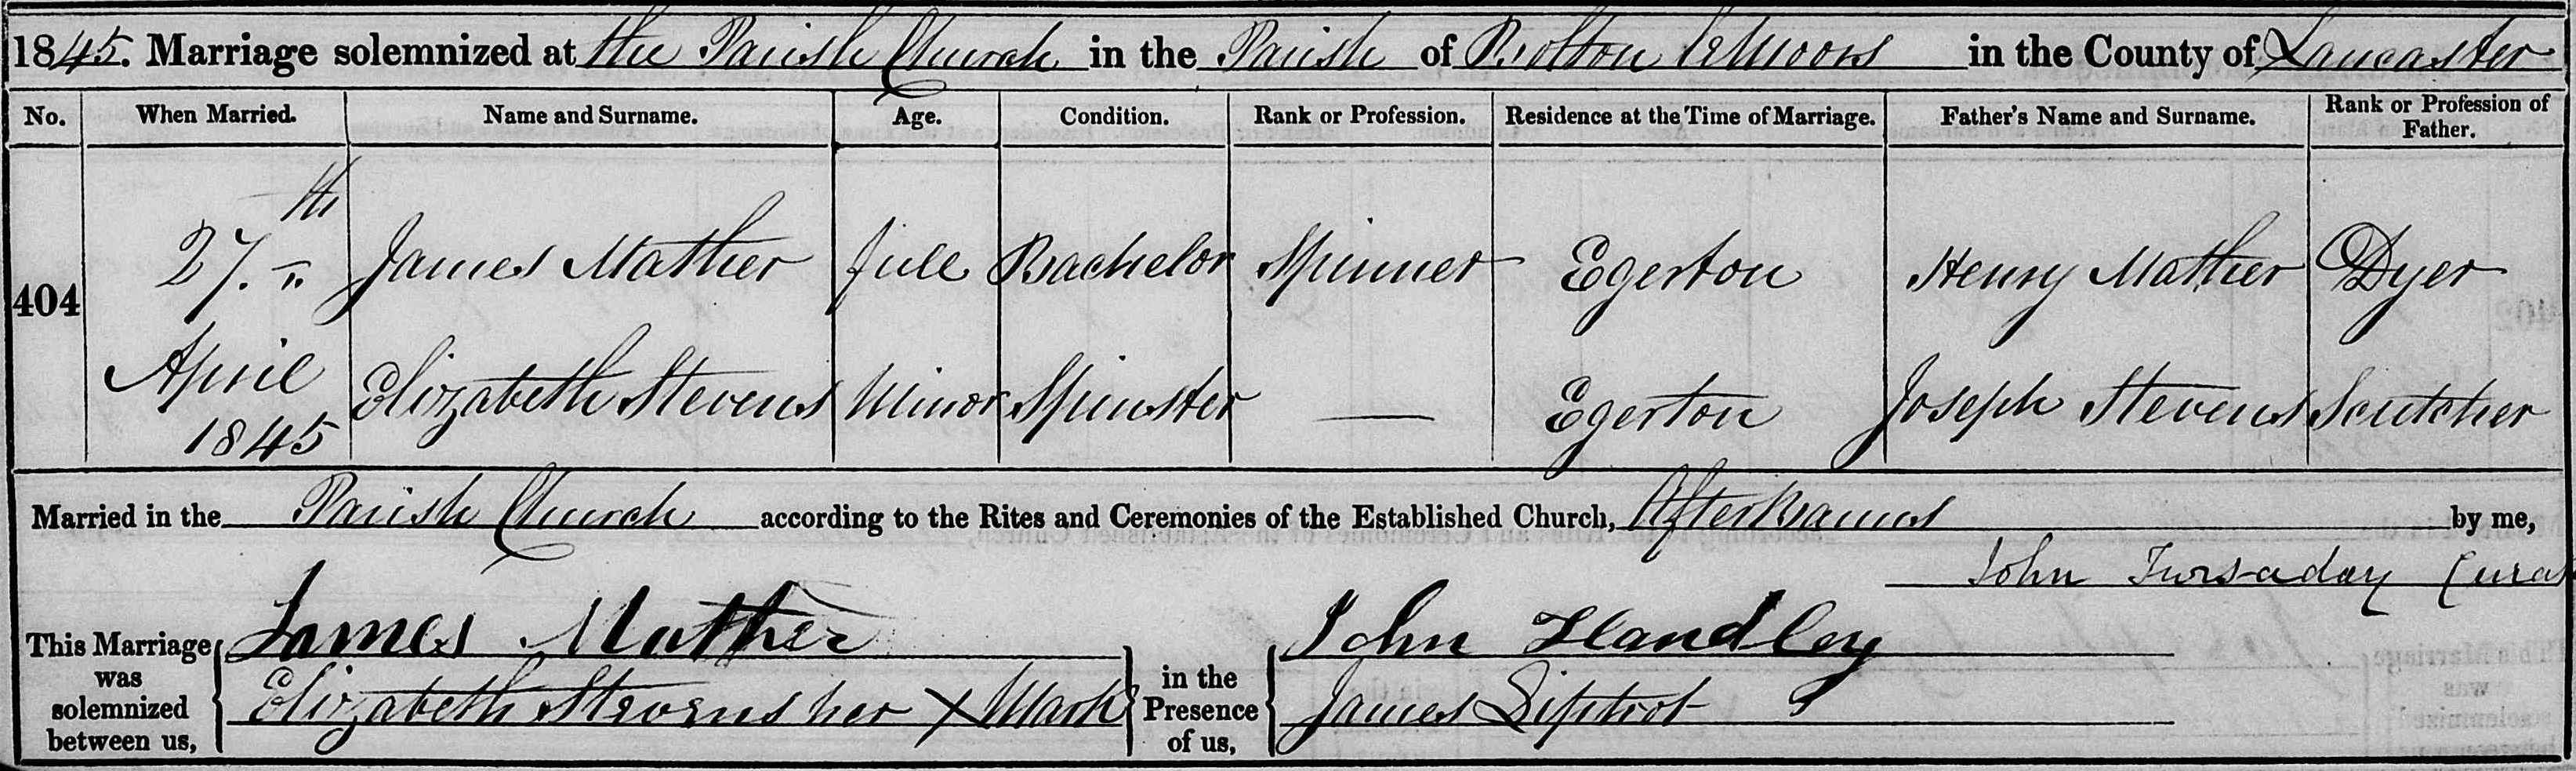 1845. Marriage solemnized at the Parish Church in the Parish of Bolton le Moors in the County of Lancaster
No. When Married. Name and Surname. Age. Condition. Rank or Profession. Residence at the Time of Marriage. Father's Name and Surname. Rank or Profession of Father.
404 27.th James Mather full Bachelor Spinner Egerton Henry Mather Dyer
April 1845 Elizabeth Stevens Minor Spinster — Egerton Joseph Stevens Scutcher
Married in the Parish Church according to the Rites and Ceremonies of the Established Church, After Banns by me,
John Curat
This Marriage was solemnized between us, James Mather in the Presence of us, John Handley
Elizabeth Stevens her X Mark James Liptrot